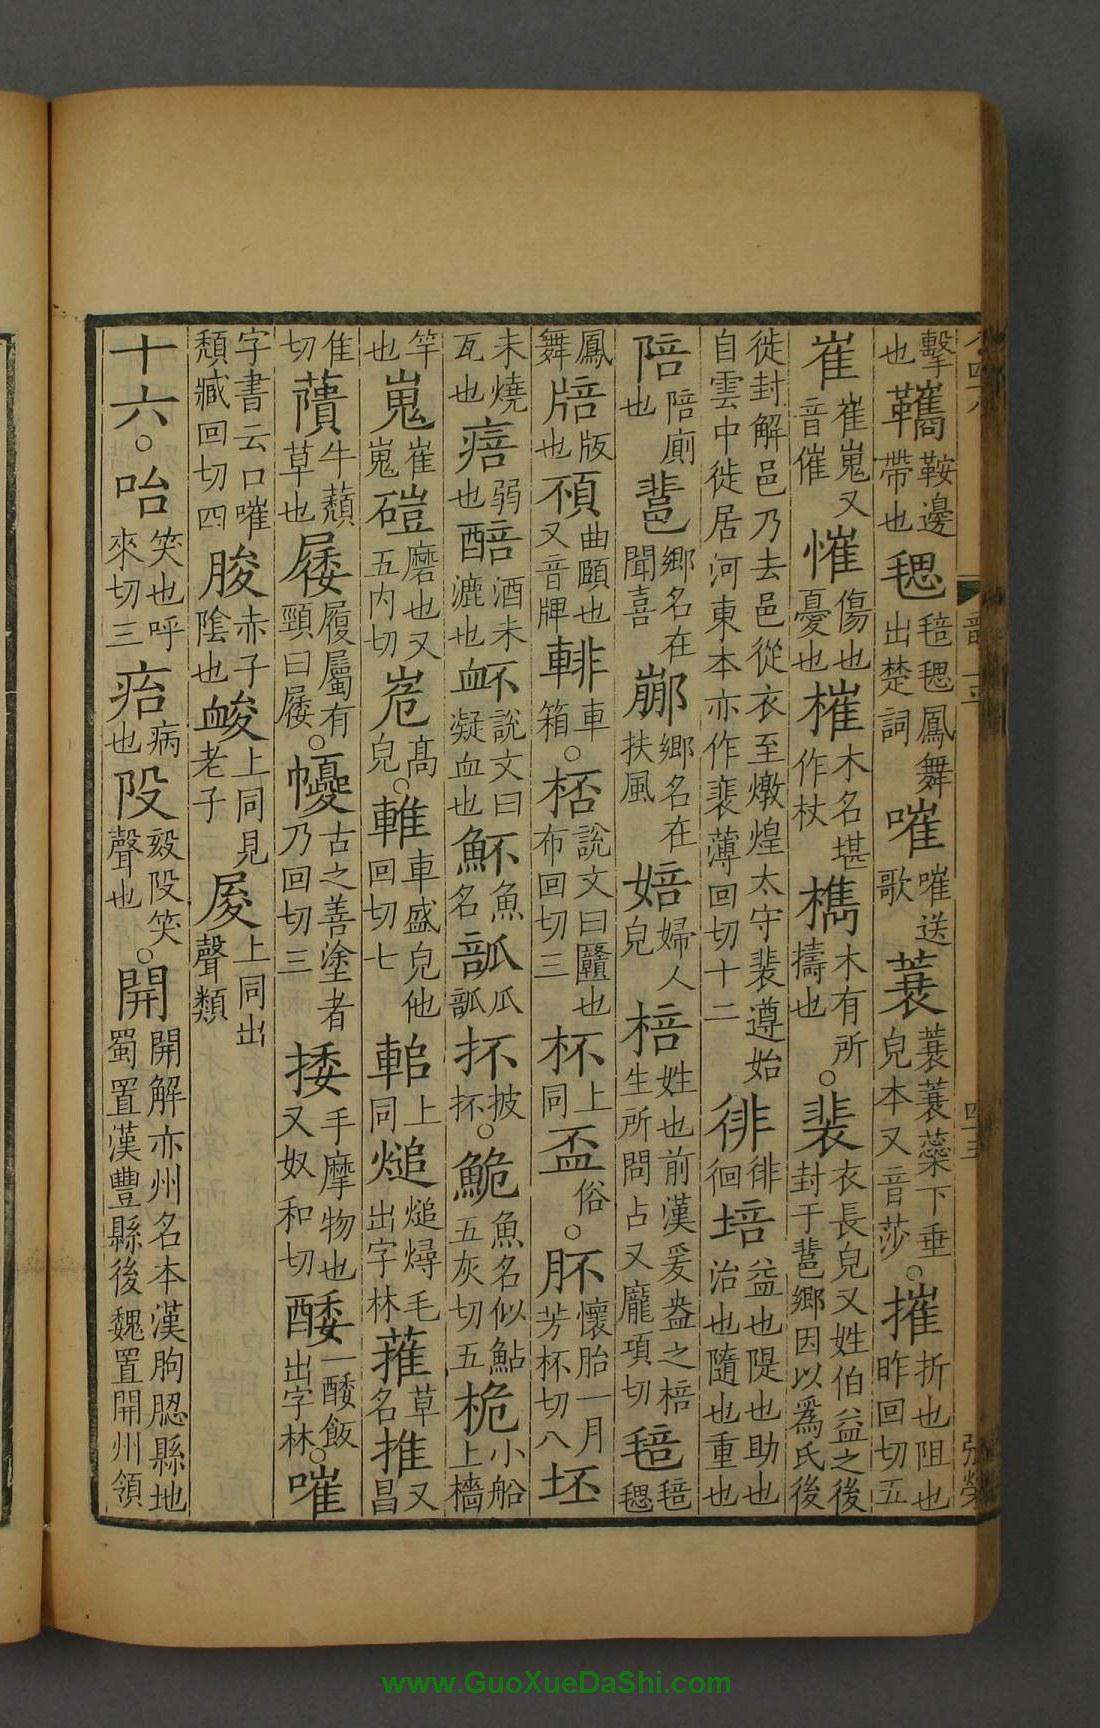 擊也韉鞍邊帶也毸㲈毸鳳舞出楚詞嗺嗺送歌䔑䔑䔑蘂下垂皃本又音莎○摧折也阻也昨回切五
崔崔嵬又音催慛傷也憂也槯木名堪作杖檇木有所擣也○裴衣長皃又姓伯益之後封于䔒邑鄉因以爲氏後
徙封解邑乃去邑從衣至燉煌太守裴遵始自雲中徙居河東本亦作裵薄回切十二徘徘徊培益也隄也助也治也隨也重也
陪陪廁也鄉名在聞喜鄉名在扶風婄婦人皃棓姓也前漢爰盎之棓生所問占又龐項切㲈㲈毸
鳳舞㾦版也䫠曲頤也又音牌輫車箱○桮說文曰㔶也布回切三杯上同盃俗○肧懷胎一月芳杯切八坯
未燒瓦也㾦弱也醅酒未漉也衃說文曰凝血也魾魚名㼎瓜抔披抔○鮠魚名似鮎五灰切五桅小船上檣
竿也嵬崔嵬磑磨也又五内切峞高皃○㨃車盛皃他回切七上同㷟㷟燖毛出字林蓷草名推又昌
隹切蘈牛蘈草也屧履屬有頸曰屧○巎古之善塗者乃回切三捼手摩物也又奴和切一餧飯出字林○嗺
字書云口嗺頹臧回切四朘赤子陰也峻上同見老子㞞上同出聲類
十六○咍笑也呼來切三㾂病也㱼毅㱼笑聲也○開開解亦州名本漢朐䏰縣地蜀置漢豐縣後魏置開州領
四十五
張榮
www.GuoXueDaShi.com